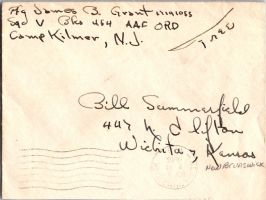 Pfc James B. Grant
Sqd V Bks 454 AAF ORD
Camp Kilmer, N.J.
Free
Bill Summerfield
447 N Clifton
Wichita, Kansas
New Brunswick